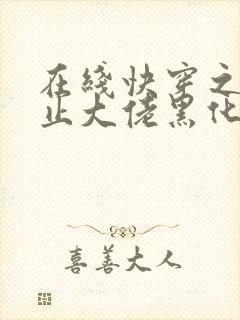 在线快穿之
止大佬黑化
喜善大人